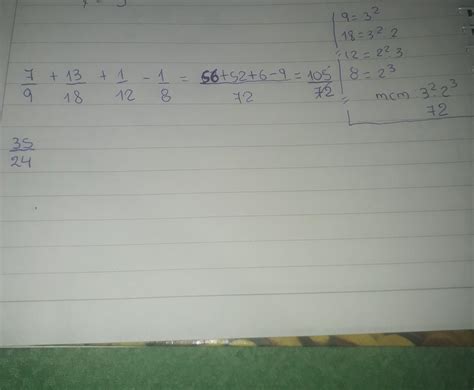 7/9 + 13/18 + 1/12 - 1/8 = 56+52+6-9/72 = 105/72 =
35/24
9 = 3²
18 = 3² · 2
12 = 2² 3
8 = 2³
mcm 3² · 2³
72